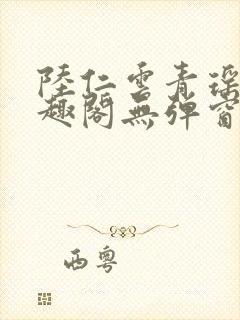 陸仁雲青瑶
趣閣無彈窗
西粵